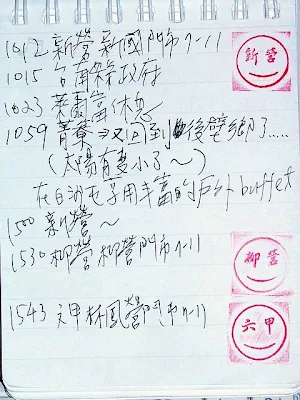 1012 新營新國門市7-11
新營
1015 台南縣政府
1023 休憩
1059 菁寮⇒又回到後壁鄉了.....
(太陽有變小了～)
在白沙屯享用丰富的戶外buffet
1500 新營～
1530 柳營柳營門市7-11
柳營
1543 六甲林鳳營門市7-11
六甲